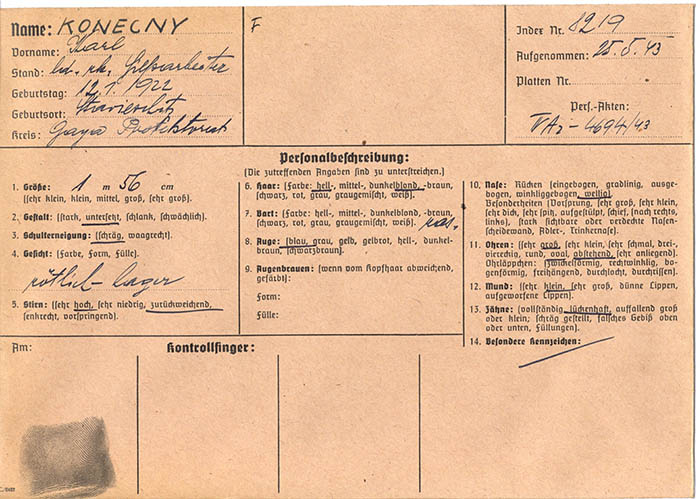 Name: KONECNY
Vorname: Karl
Stand: led. rk. Hilfsarbeiter
Geburtstag: 12.1.1922
Geburtsort:
Kreis: Gaya Protektorat
F
Index Nr. 8219
Aufgenommen: 25.5.43
Platten Nr.
Pers.-Akten:
4694/43
Personalbeschreibung:
(Die zutreffenden Angaben sind zu unterstreichen.)
1. Größe: 1 m 56 cm
(sehr klein, klein, mittel, groß, sehr groß).
2. Gestalt: (stark, untersetzt, schlank, schwächlich).
3. Schulterneigung: (schräg, waagrecht).
4. Gesicht: (Farbe, Form, Fülle).
rötlich - hager
5. Stirn: (sehr hoch, sehr niedrig, zurückweichend,
senkrecht, vorspringend).
6. Haar: (Farbe: hell-, mittel-, dunkelblond, -braun,
schwarz, rot, grau, graugemischt, weiß).
7. Bart: (Farbe: hell-, mittel-, dunkelblond, -braun,
schwarz, rot, grau, graugemischt, weiß). ras.
8. Auge: (blau, grau, gelb, gelbrot, hell-, dunkel-
braun, schwarzbraun).
9. Augenbrauen: (wenn vom Kopfhaar abweichend,
gefärbt):
Form:
Fülle:
10. Nase: Rücken (eingebogen, gradlinig, ausge-
bogen, winkliggebogen, wellig).
Besonderheiten (Vorsprung, sehr groß, sehr klein,
sehr dick, sehr spitz, aufgestülpt, schief, (nach rechts,
links), stark sichtbare oder verdeckte Nasen-
scheidewand, Adler-, Trinkernase).
11. Ohren: (sehr groß, sehr klein, sehr schmal, drei-,
viereckig, rund, oval, abstehend, sehr anliegend).
Ohrläppchen: (zwickelförmig, rechtwinklig, bo-
genförmig, freihängend, durchlocht, durchrissen).
12. Mund: (sehr klein, sehr groß, dünne Lippen,
aufgeworfene Lippen).
13. Zähne: (vollständig, lückenhaft, auffallend groß
oder klein; schräg gestellt, falsches Gebiß oben
oder unten, Füllungen).
14. Besondere Kennzeichen:
Am:
Kontrollfinger: